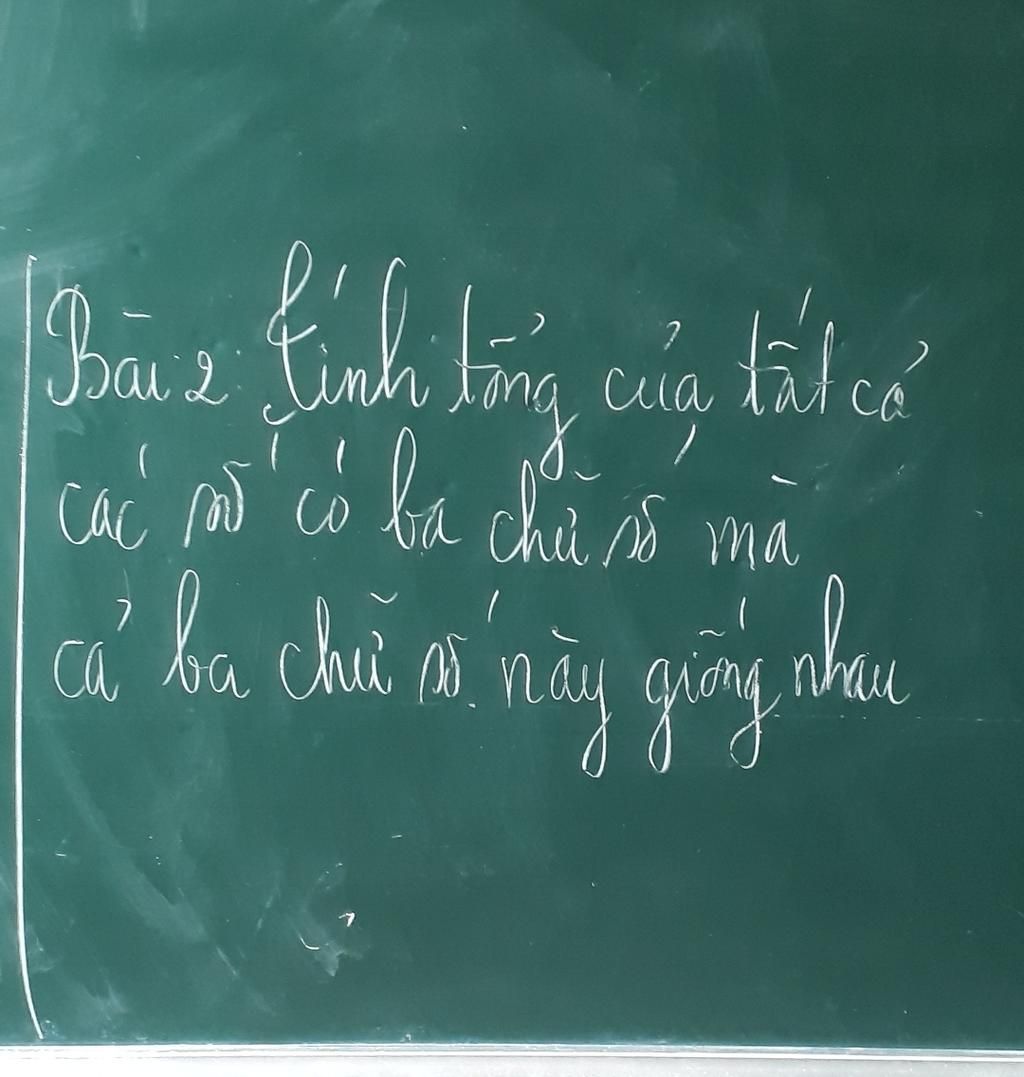 Bài 2: Tính tổng của tất cả
các số có ba chữ số mà
cả ba chữ số này giống nhau